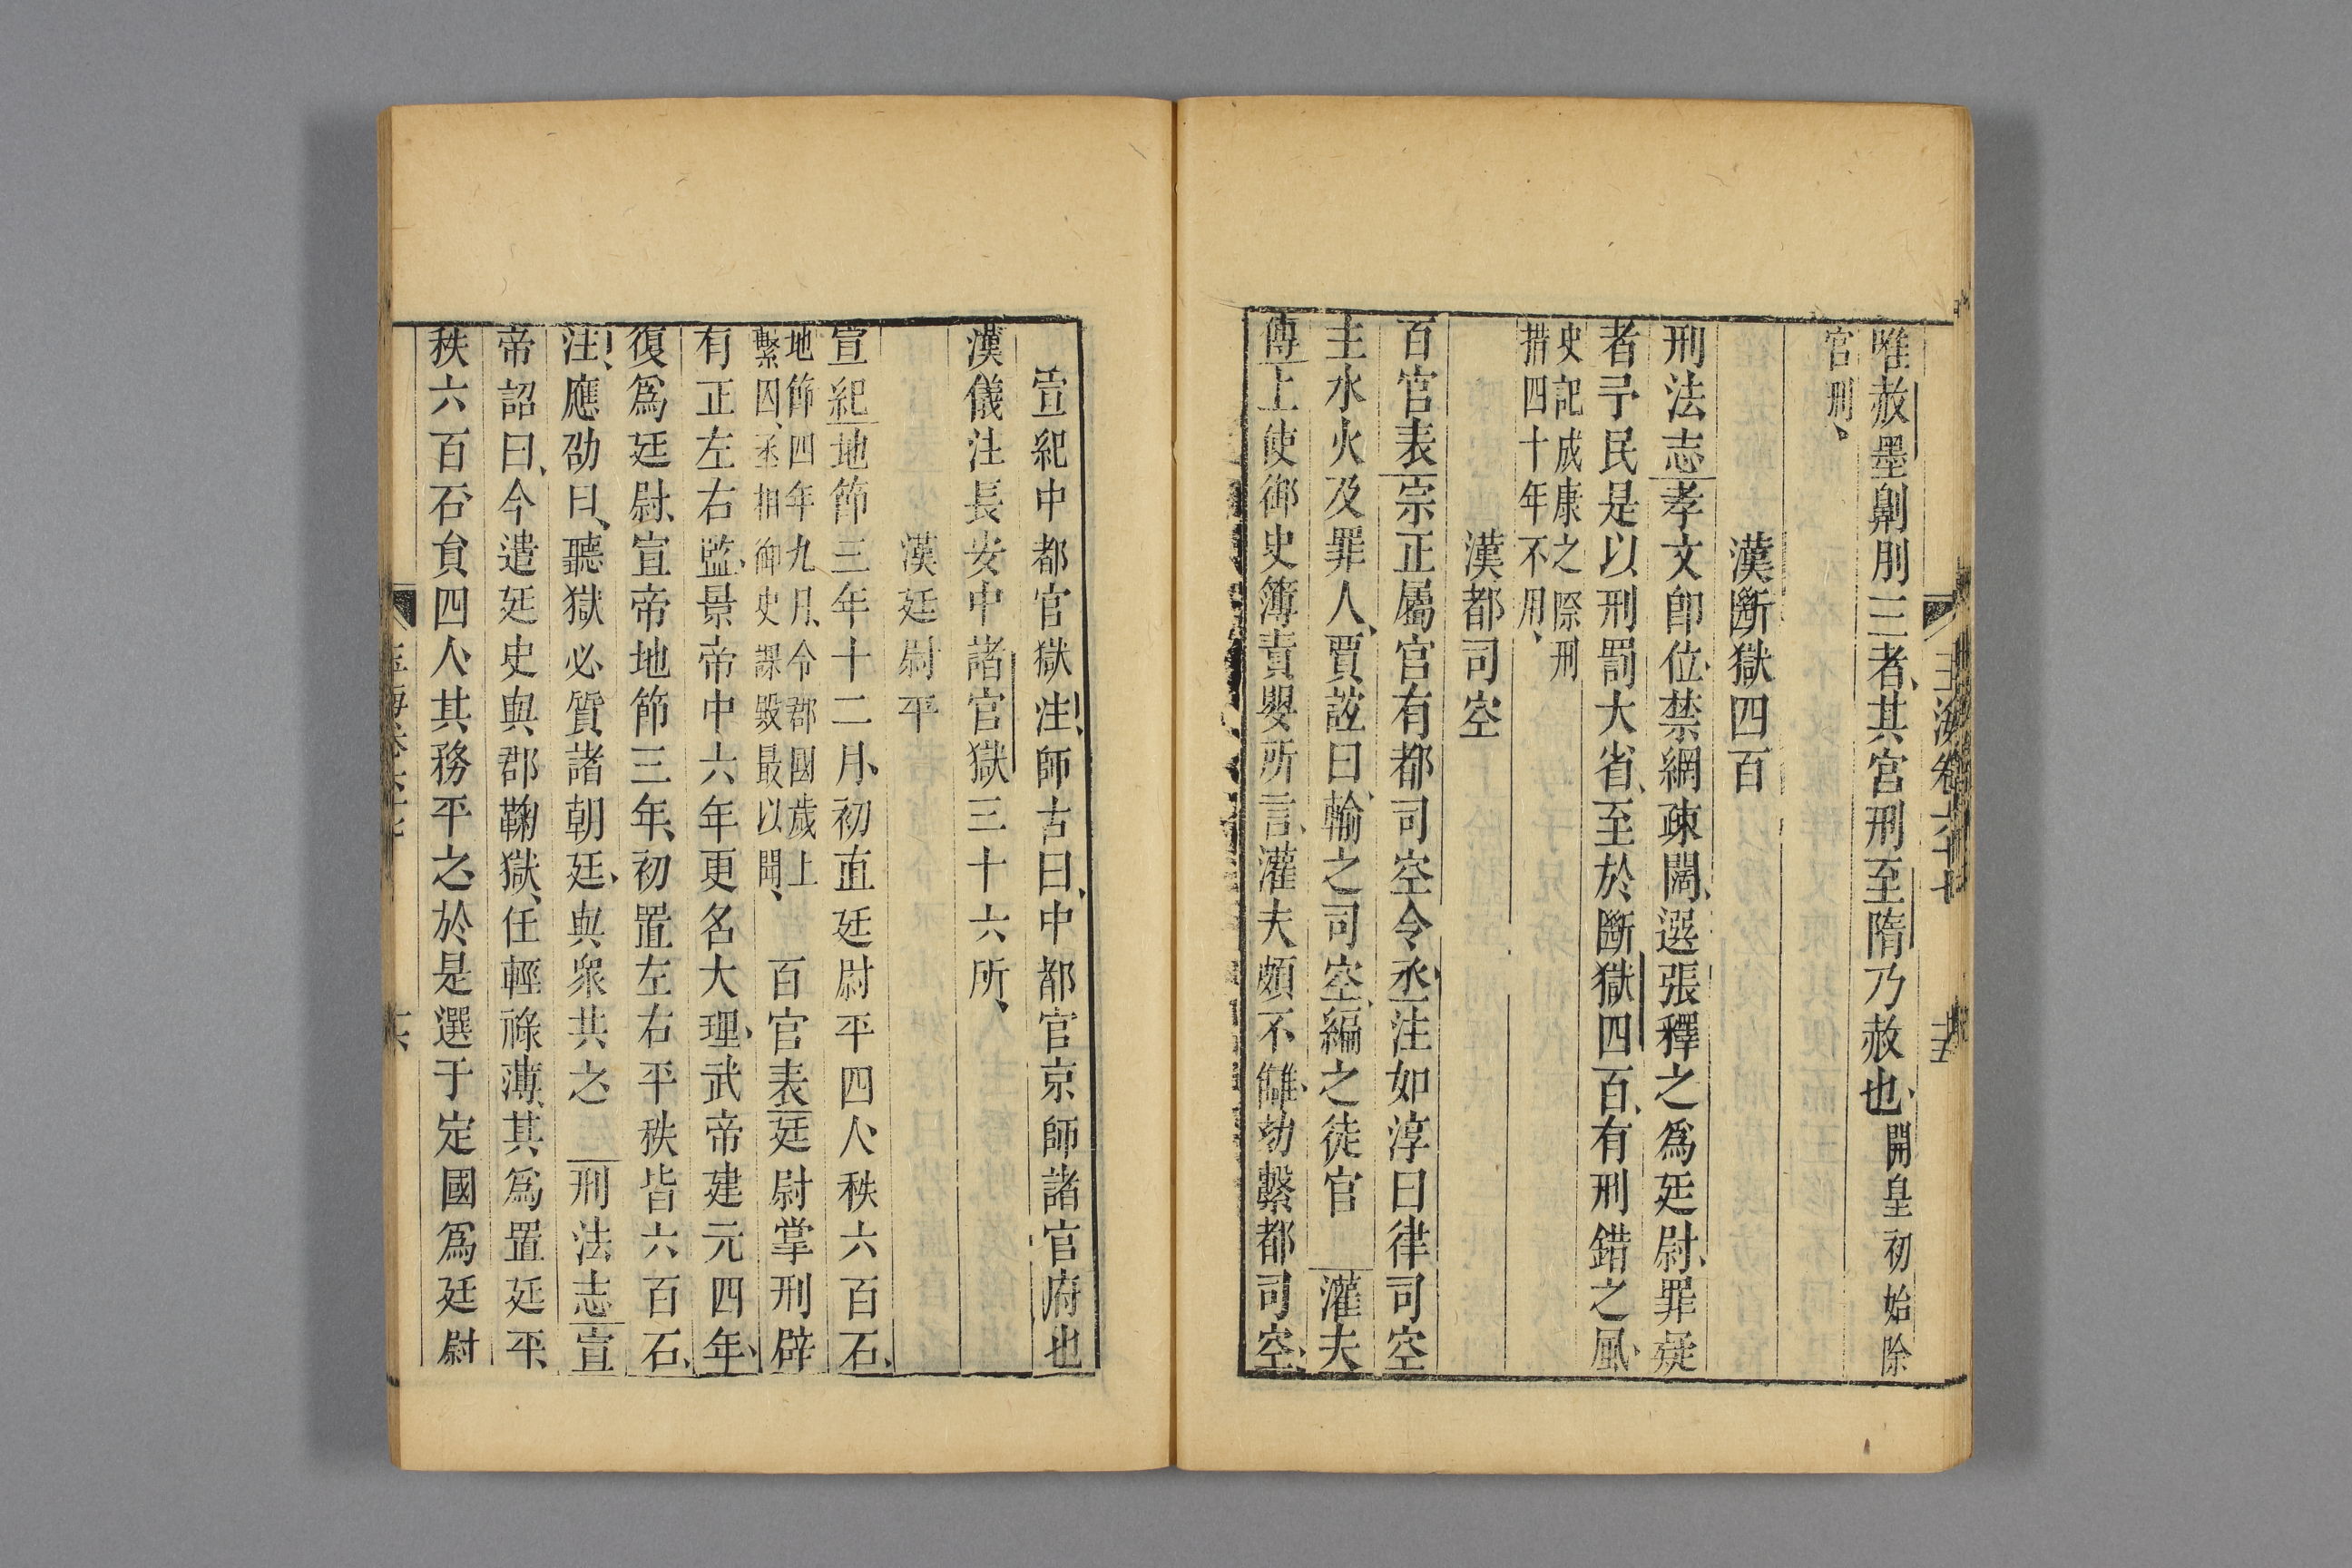 玉海卷六十七
唯赦墨劓刖三者其宮刑至隋乃赦也開皇初始除
宮刑
漢斷獄四百
刑法志孝文卽位禁網疎闊選張釋之爲廷尉罪疑
者予民是以刑罰大省至於斷獄四百有刑錯之風
史記成康之際刑
措四十年不用
漢都司空
百官表宗正屬官有都司空令丞注如淳曰律司空
主水火及罪人賈誼曰輸之司空編之徒官 灌夫
傳上使御史簿責嬰所言灌夫頗不讎劾繫都司空
宣紀中都官獄注師古曰中都官京師諸官府也
漢儀注長安中諸官獄三十六所
漢廷尉平
宣紀地節三年十二月初置廷尉平四人秩六百石
地節四年九月令郡國歲上
繫囚丞相御史課殿最以聞 百官表廷尉掌刑辟
有正左右監景帝中六年更名大理武帝建元四年
復爲廷尉宣帝地節三年初置左右平秩皆六百石
注應劭曰聽獄必質諸朝廷與衆共之 刑法志宣
帝詔曰今遣廷史與郡鞠獄任輕祿薄其爲置廷平
秩六百石員四人其務平之於是選于定國爲廷尉